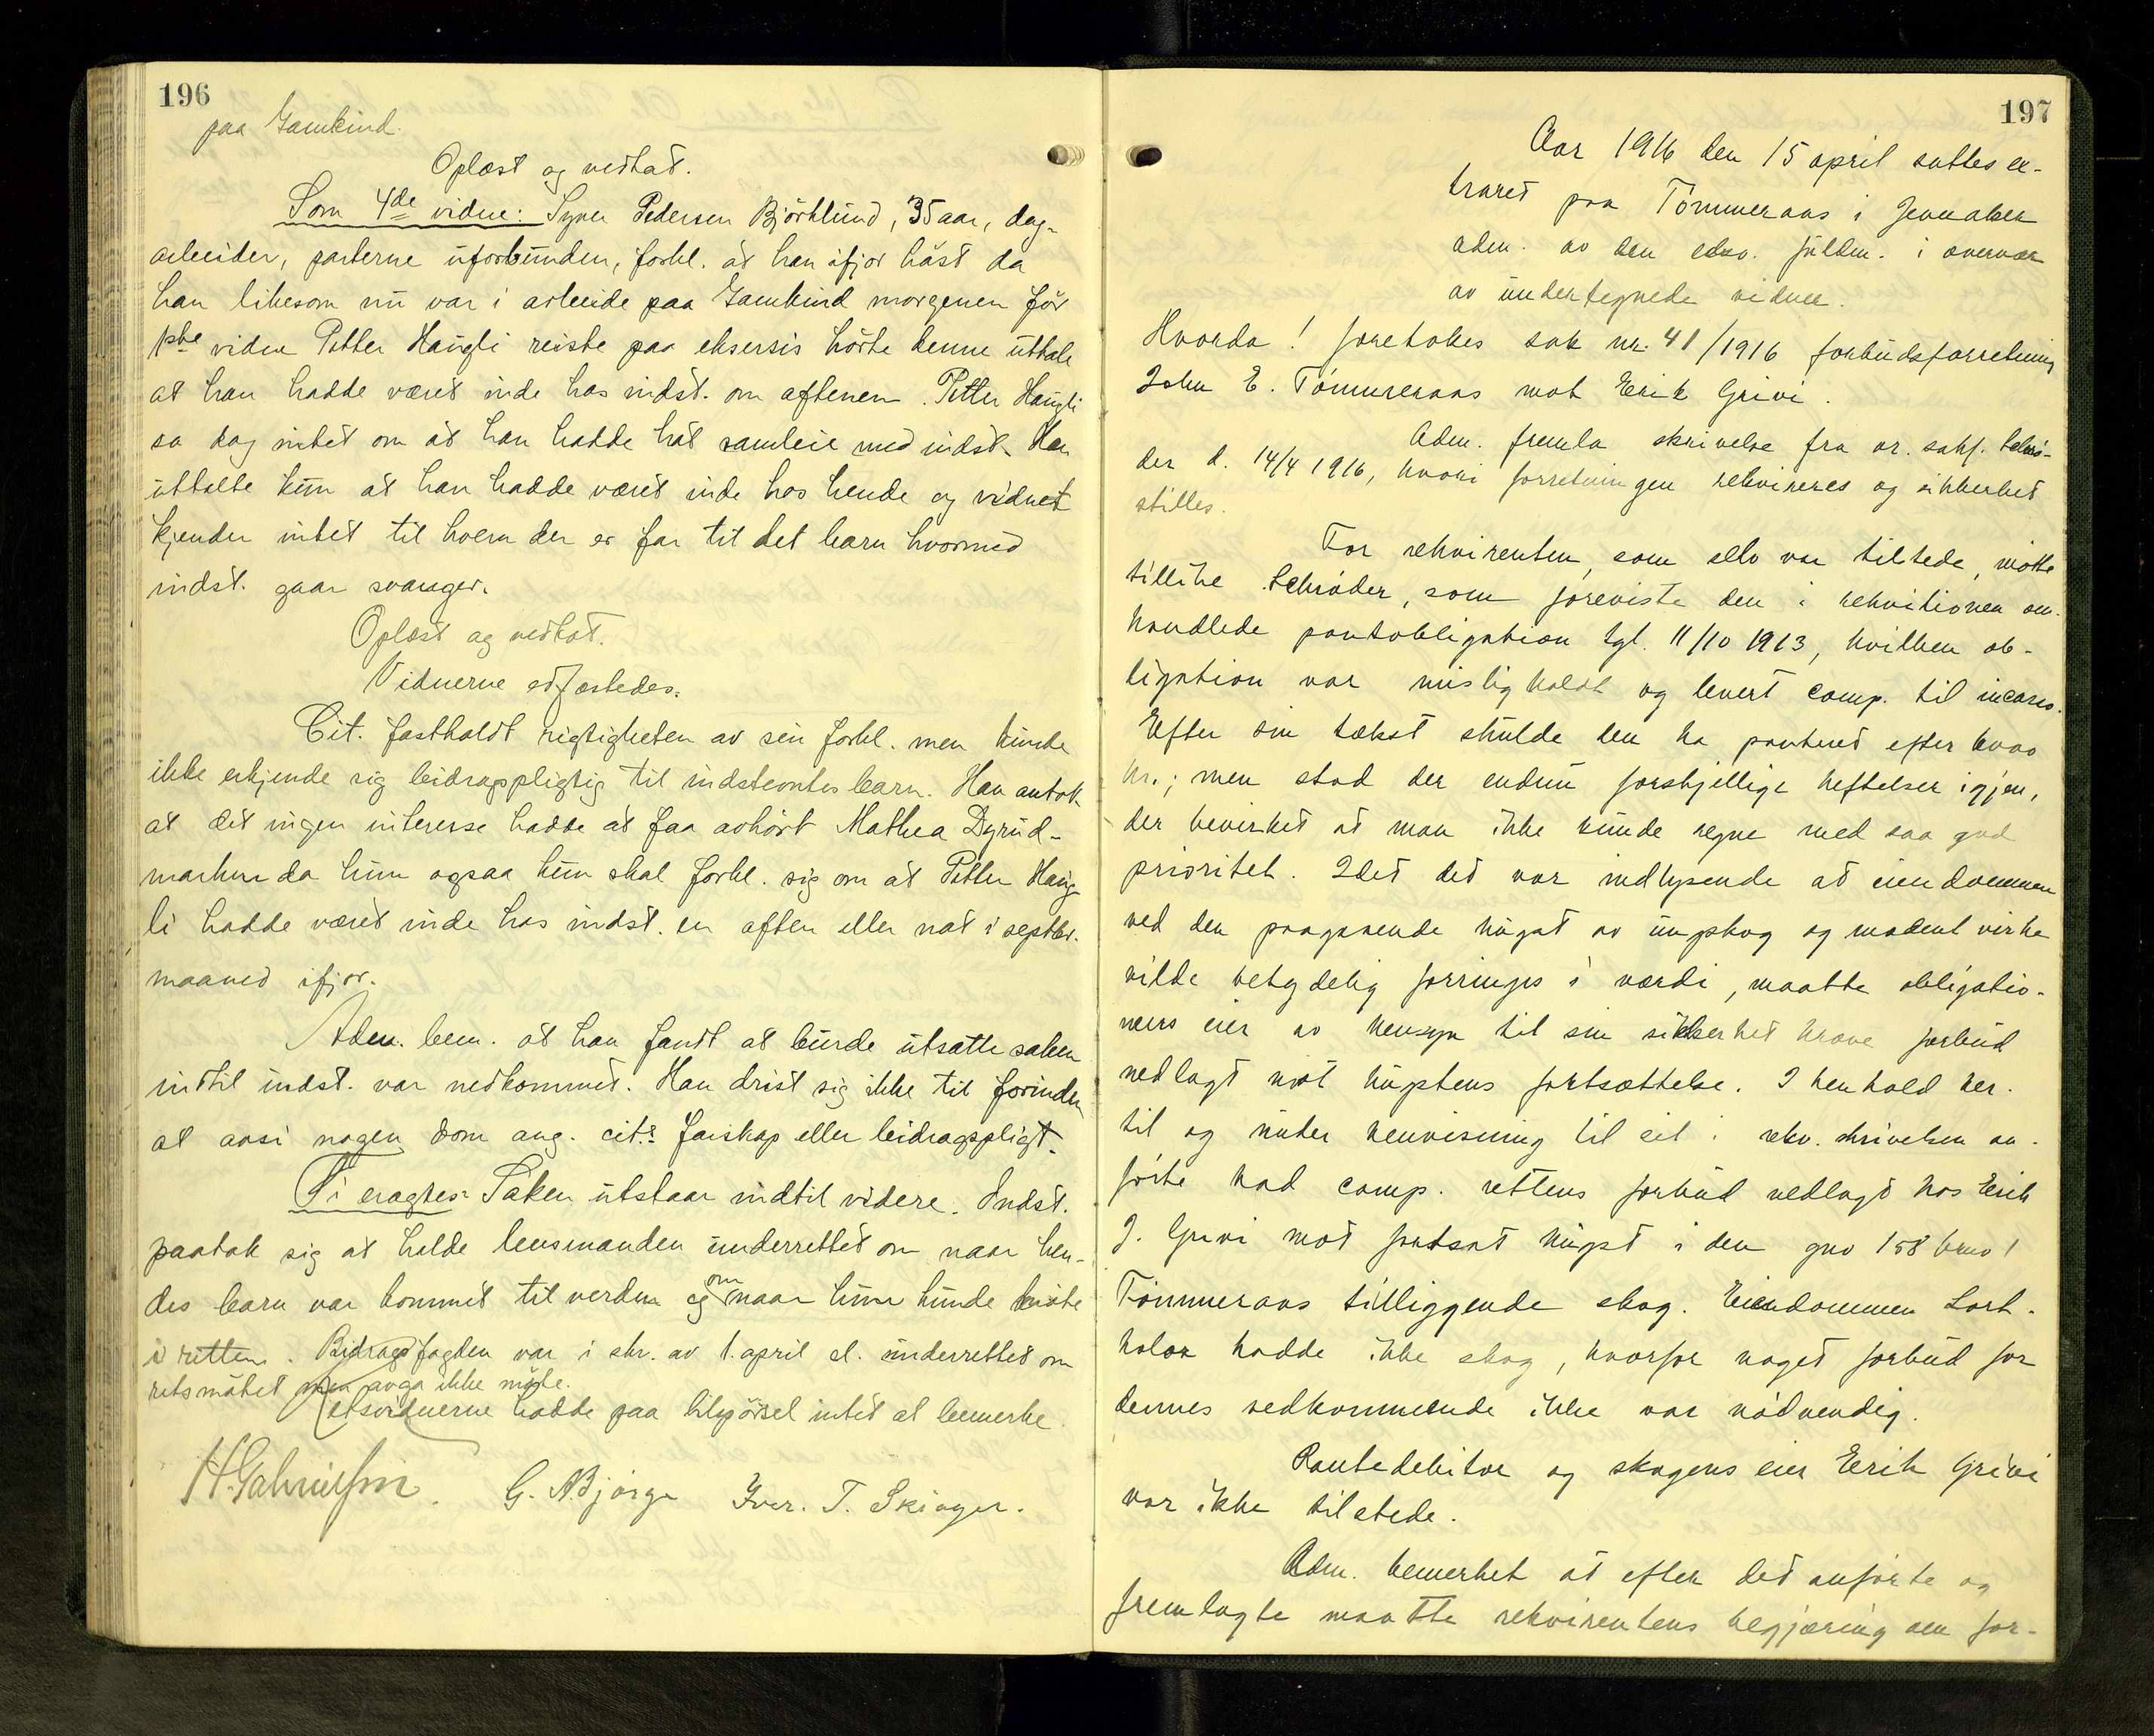 196
paa Gamkind.
Oplæst og vedtat.
Som 4de vidne: Syver Pedersen Björklund, 35 aar, dag-
arbeider, parterne uforbunden, forkl. at han ifjor höst da
han likesom nu var i arbeide paa Gamkind morgenen för
1ste vidne Petter Haugli reiste paa eksersis hörte denne uttale
at han hadde været inde hos indst. om aftenen. Petter Haugli
sa dog intet om at han hadde hat samleie med indst. Han
uttalte kun at han hadde været inde hos hende og vidnet
kjender intet til hvem der er far til det barn hvormed
indst. gaar svanger.
Oplæst og vedtat.
Vidnerne edfæstedes.
Cit. fastholdt rigtigheten av sin forkl. men kunde
ikke erkjende sig bidragspligtig til indstevntes barn. Han antok
at det ingen interesse hadde at faa avhört Mathea Dyrud-
marken da hun ogsaa kun skal forkl. sig om at Petter Haug-
li hadde været inde hos indst. en aften eller nat i septbr.
maaned ifjor.
Adm. bem. at han fandt at burde utsætte saken
indtil indst. var nedkommet. Han drist sig ikke til forinden
at avsi nogen dom ang. cit.s farskap eller bidragspligt.
Ti eragtes: Saken utstaar indtil videre. Indst.
paatok sig at holde lensmanden underrettet om naar hen-
des barn var kommet til verden og om naar hun kunde möte
i retten. Bidragsfogden var i skr. av 1. april d. underrettet om
retsmötet men avga ikke möte.
Retsvidnerne hadde paa tilspörsel intet at bemerke.
H. Gabrielsen. G. A. Bjørge Iver. T. Skiager.
197
Aar 1916 den 15 april sattes ex-
traret paa Tömmeraas i Jevnaker
adm. av den edsv. fuldm. i overvær
av undertegnede vidner.
Hvorda! foretokes sak nr. 41/1916 forbudsforretning
John E. Tömmeraas mot Erik Grivi.
Adm. fremla skrivelse fra or. sakf. Schrö-
der d. 14/4 1916, hvori forretningen rekvireres og sikkerhet
stilles.
For rekvirenten, som selv var tilstede, mötte
tillike Schröder, som foreviste den i rekvisitionen om-
handlede pantobligation tgl. 11/10 1913, hvilken ob-
ligation var misligholdt og levert comp. til incasso.
Efter sin tekst skulde den ha panteret efter
kr.; men stod der endnu forskjellige heftelser igjen,
der bevirket at man ikke kunde regne med saa god
prioritet. Idet det var indlysende at eiendommen
ved den paagaaende hugst av ungskog og modent virke
vilde betydelig forringes i værdi, maatte obligatio-
nens eier av hensyn til sin sikkerhet kræve forbud
nedlagt mot hugstens fortsættelse. I henhold her-
til og under henvisning til sit i rekv. skrivelsen an-
förte bad comp. rettens forbud nedlagt hos Erik
J. Grivi mot fortsat hugst i den gno 158 bno 1
Tömmeraas tilliggende skog. Eiendommen Sort-
holen hadde ikke skog, hvorfor noget forbud for
dennes vedkommende ikke var nödvendig.
Pantedebitor og skogens eier Erik Grivi
var ikke tilstede.
Adm. bemerket at efter det anförte og
fremlagte maatte rekvirentens begjæring om for-